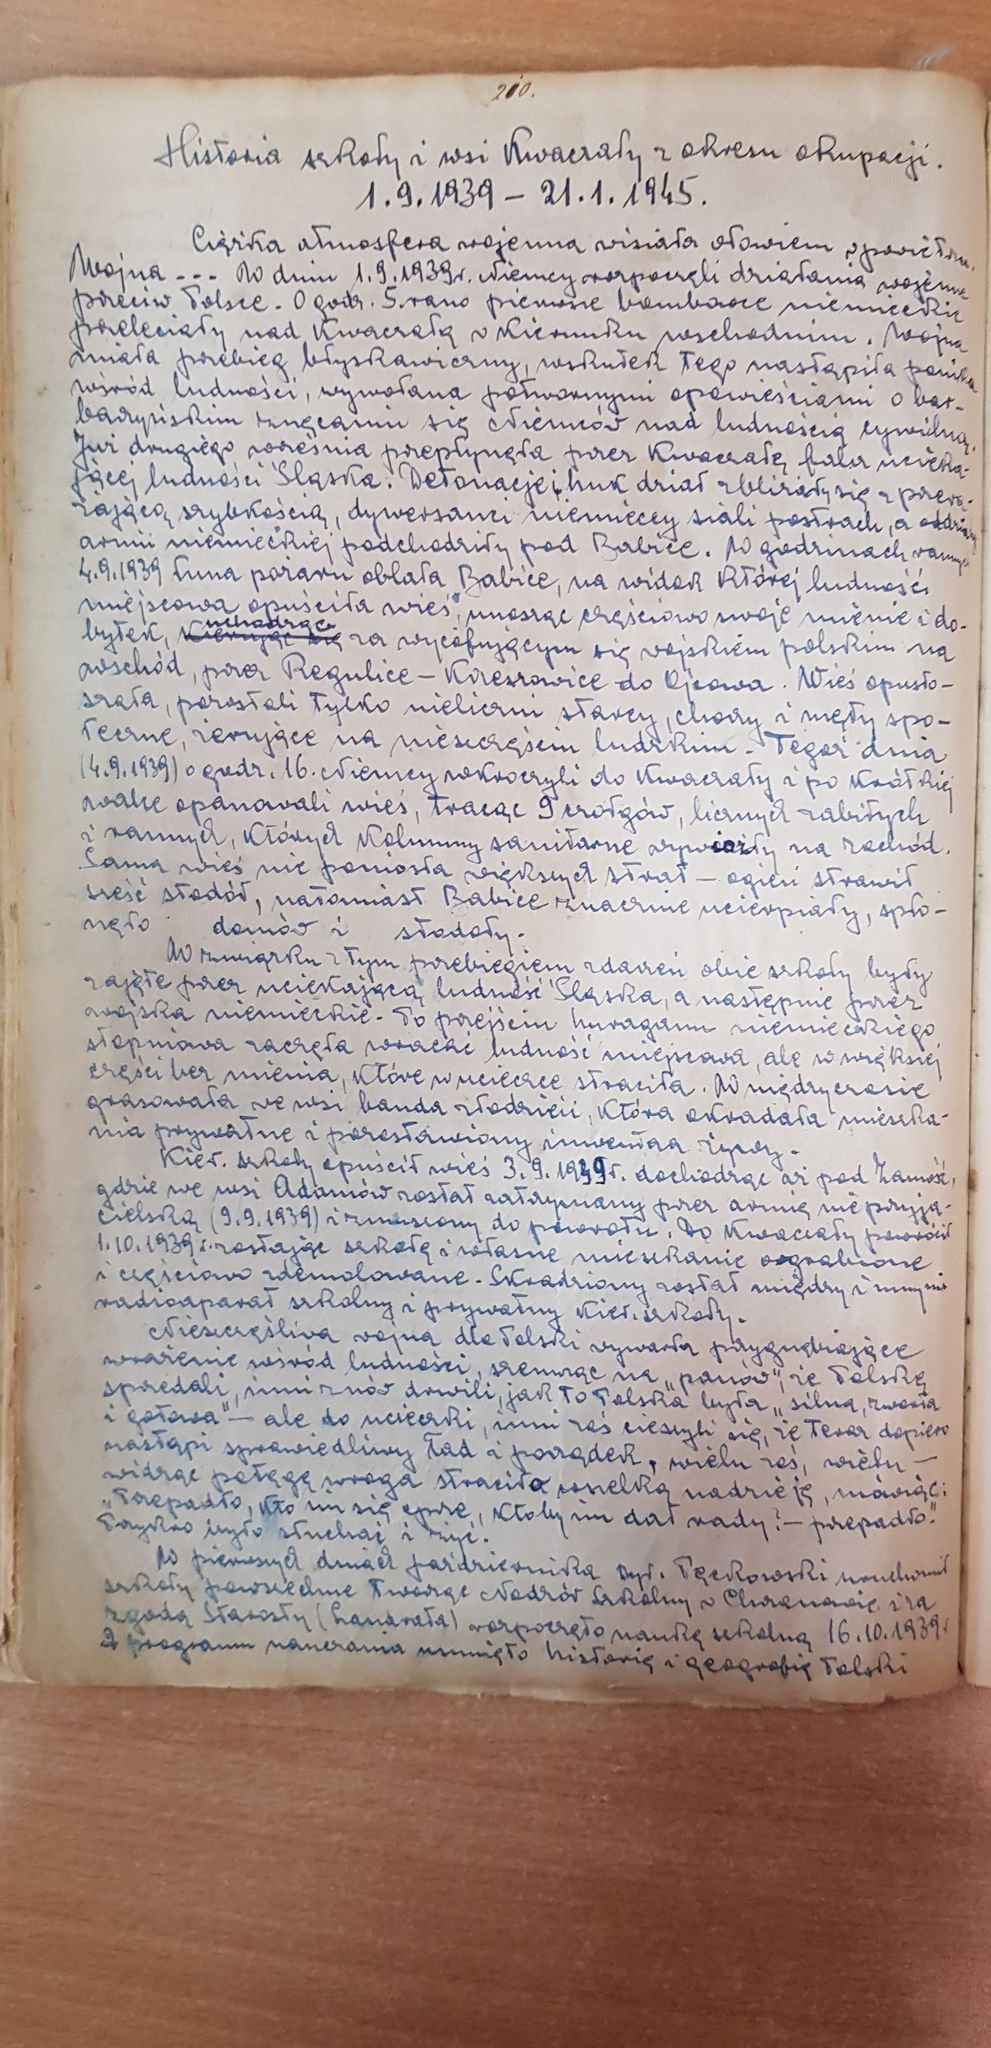 210.
Historia szkoły i wsi Kwaczały z okresu okupacji.
1.9.1939 – 21.1.1945.
Ciężka atmosfera wojenna wisiała ołowiem w powietrzu.
Wojna --- W dniu 1.9.1939r. Niemcy rozpoczęli działania wojenne
przeciw Polsce. O godz. 5. rano pierwsze bombowce niemieckie
przeleciały nad Kwaczałą w kierunku wschodnim. Wojna
miała przebieg błyskawiczny, wskutek tego nastąpiła panika
wśród ludności, wywołana potwornymi opowieściami o bar-
barzyńskim znęcaniu się Niemców nad ludnością cywilną.
Już drugiego września przepłynęła przez Kwaczałę fala ucieka-
jącej ludności Śląska. Detonacje i huk dział zbliżały się z przera-
żającą szybkością, dywersanci niemieccy siali postrach, a oddziały
armii niemieckiej podchodziły pod Babice. W godzinach rannych
4.9.1939 łuna pożaru oblała Babice, na widok której ludność
miejscowa opuściła wieś, unosząc częściowo swoje mienie i do-
bytek, uchodząc za wycofującym się wojskiem polskim na
wschód, przez Regulice – Krzeszowice do Ojcowa. Wieś opusto-
szała, pozostali tylko nieliczni starcy, chorzy i męty spo-
łeczne, żerujące na nieszczęściu ludzkim. Tegoż dnia
(4.9.1939) o godz. 16. Niemcy wkroczyli do Kwaczały i po krótkiej
walce opanowali wieś, tracąc 9 czołgów, licznych zabitych
i rannych, których kolumny sanitarne wywiozły na zachód.
Sama wieś nie poniosła większych strat – ogień strawił
sześć stodół, natomiast Babice znacznie ucierpiały, spło-
nęło domów i stodoły.
W związku z tym przebiegiem zdarzeń obie szkoły były
zajęte przez uciekającą ludność Śląska, a następnie przez
wojska niemieckie. Po przejściu huraganu niemieckiego
stopniowo zaczęła wracać ludność miejscowa, ale w większej
części bez mienia, które w ucieczce straciła. W międzyczasie
grasowała we wsi banda złodziei, która okradała mieszka-
nia prywatne i pozostawiony inwentarz żywy.
Kier. szkoły opuścił wieś 3.9.1939r. dochodząc aż pod Zamość,
gdzie we wsi Adamów został zatrzymany przez armię nieprzyja-
cielską (9.9.1939) i zmuszony do powrotu. Do Kwaczały powrócił
1.10.1939r. zastając szkołę i własne mieszkanie ograbione
i częściowo zdemolowane. Skradziony został między innymi
radioaparat szkolny i prywatny kier. szkoły.
Nieszczęśliwa wojna dla Polski wywarła przygnębiające
wrażenie wśród ludności, szemrząc na „panów”, że Polskę
sprzedali, inni znów drwili, jak to Polska była „silna, zwarta
i gotowa” – ale do ucieczki, inni zaś cieszyli się, że teraz dopiero
nastąpi sprawiedliwy ład i porządek, wielu zaś, wielu –
widząc potęgę wroga straciło wszelką nadzieję, mówiąc:
„Przepadło, kto im się oprze, ktoby im dał rady? – przepadło.”
Przykro było słuchać i żyć.
W pierwszych dniach października Pączkowski uruchomił
szkoły powszechne tworząc Nadzór Szkolny w Chrzanowie i za
zgodą Starosty (Landrata) rozpoczęto naukę szkolną 16.10.1939r
Z programu nauczania usunięto historię i geografię Polski